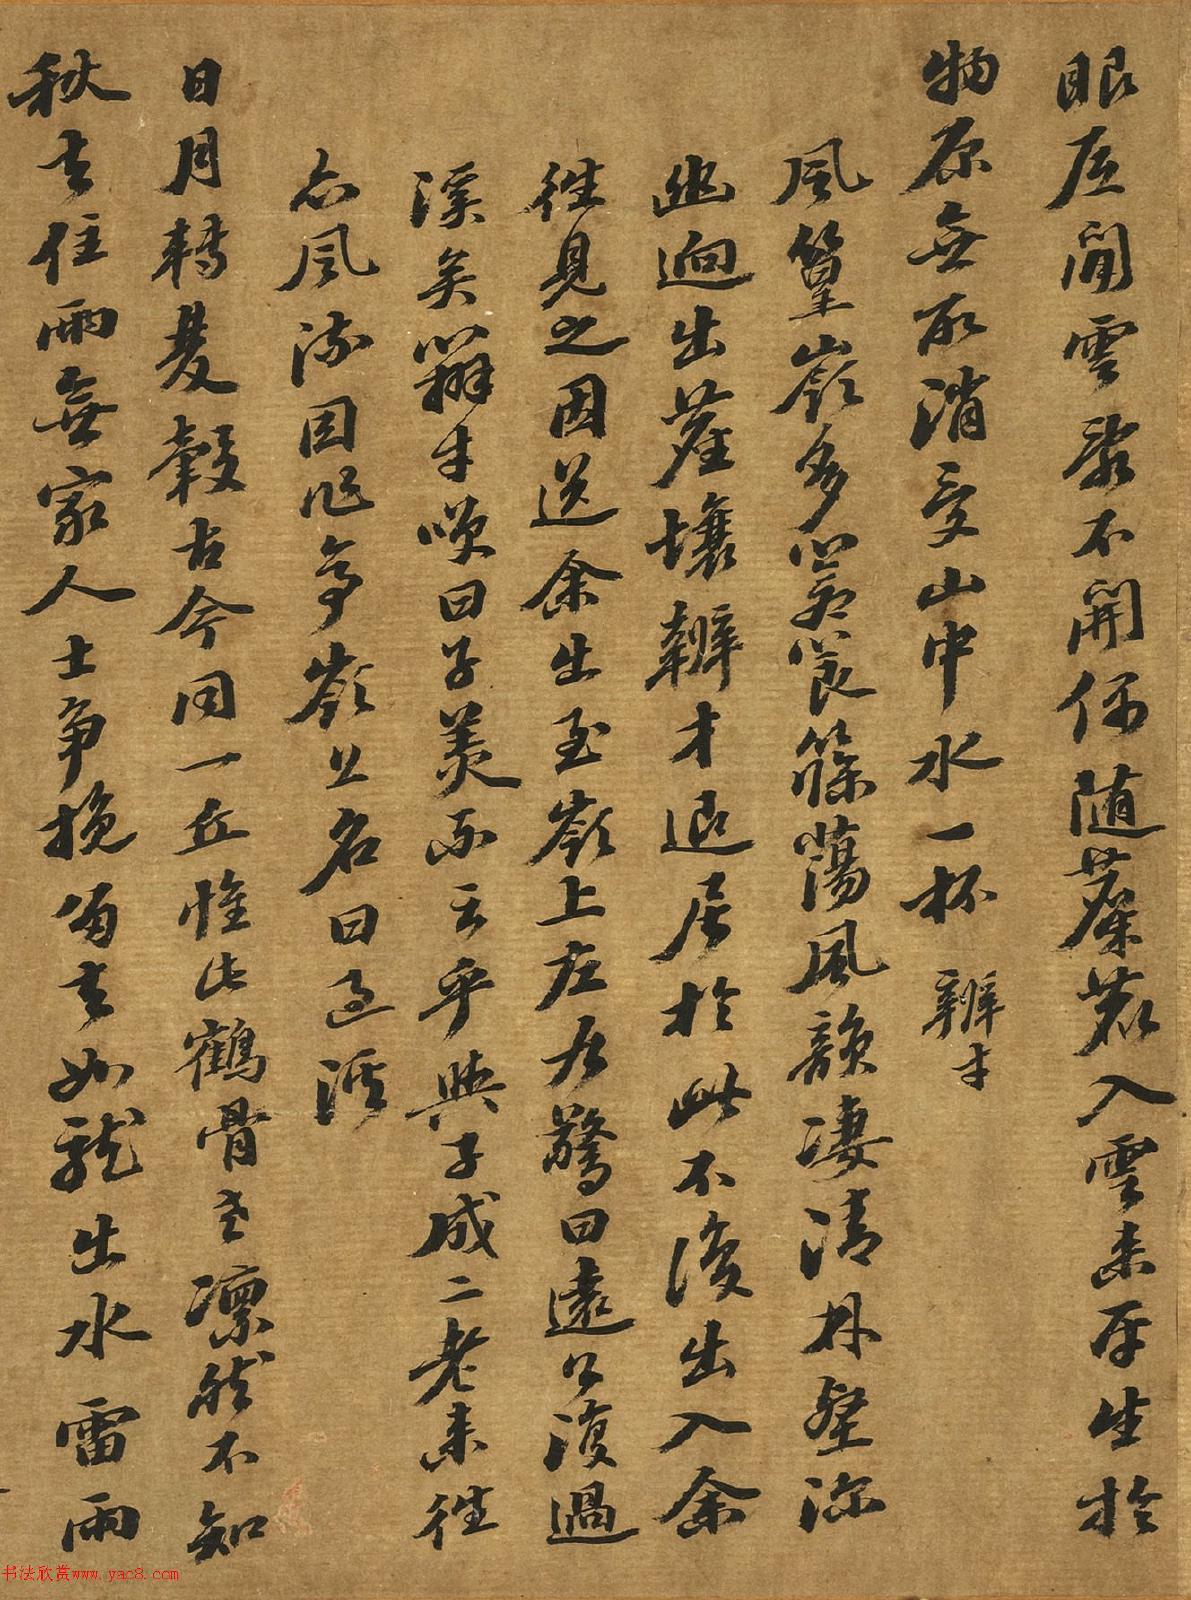 眼底閒雲亂不開偶隨麋鹿入雲來平生於
物原無取消受山中水一杯 辨才
風篁嶺多蒼筤篠蕩風韻凄清林壑深
幽迥出塵壤辨才退居於此不復出入余
往見之因送余出至嶺上左右驚曰遠公復過
溪矣辨才咲曰子美不云乎與子成二老來往
亦風流因作亭嶺上名曰過溪
日月轉雙轂古今同一丘惟此鶴骨老凜然不知
秋去住兩無家人士爭挽留去如龍出水雷雨
书法欣赏www.yac8.com